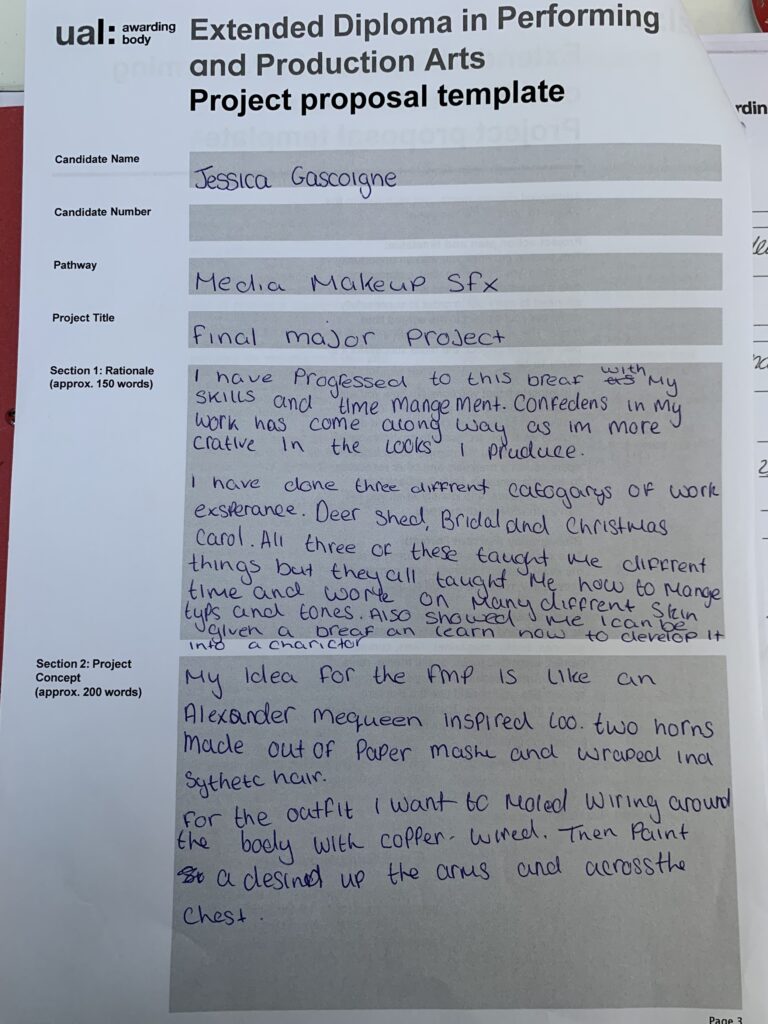 ual: awarding body
Extended Diploma in Performing
and Production Arts
Project proposal template
Candidate Name
Jessica Gascoigne
Candidate Number
Pathway
Media Makeup Sfx
Project Title
final major project
Section 1: Rationale
(approx. 150 words)
I have Progressed to this breaf with My
SKILLS and time mangement. Confedens in my
work has come along way as im more
crative in the looks I produce.
I have done three diffrent catogarys of work
exsperance. Deer Shed, Bridal and Christmas
Carol. All three of these taught me diffrent
things but they all taught me how to mange
time and work on many diffrent Skin
typs and tones. Also showed me I can be
given a breaf an learn how to develop it
into a charictor
Section 2: Project
Concept
(approx. 200 words)
My idea for the fmp is like an
Alexander mequeen inspired loo. two horns
made out of Paper mashe and wraped in a
Sythetc hair.
For the outfit I want to moled wiring around
the body with copper- wired. Then Paint
a desined up the arms and across the
Chest.
Page 3
rdin